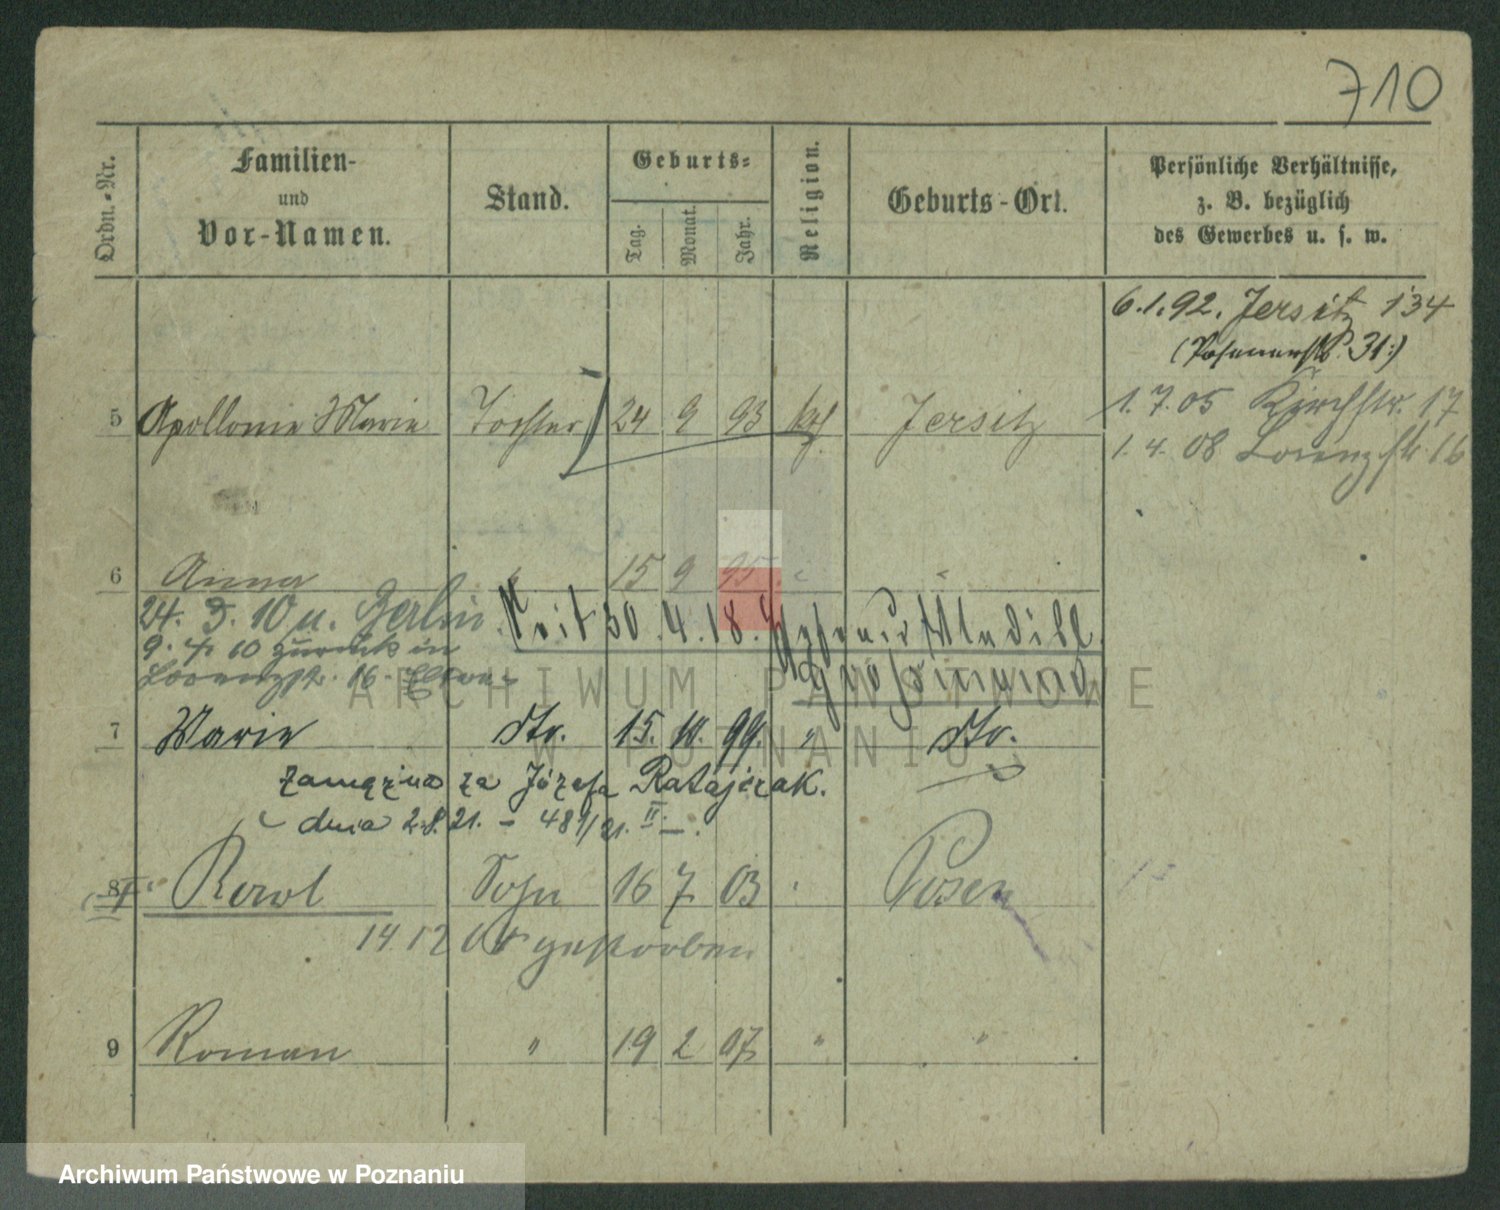 710
Ordn.-Nr.
Familien-
und
Vor-Namen.
Stand.
Geburts-
Tag.
Monat.
Jahr.
Religion.
Geburts-Ort.
Persönliche Verhältnisse,
z. B. bezüglich
des Gewerbes u. s. w.
6.1.92. Jersitz 134
(Posenerstr. 31.)
5 Apollonie Marie Tochter 24 9 93 kth Jersitz
1.7.05 Kirchstr. 17
1.4.08 Lorenzstr. 16
6 Anna " 15 9 95 "
24. 3. 10 n. Berlin
Seit 30.4.18.
9. 4. 10 zurück in
Lorenzstr. 16. Eltern
7 Marie dto. 15. 10. 99. " dto.
zamężna za Józefa Ratajczak.
dnia 2.8.21. – 489/21. II –.
8 Karol Sohn 16 7 03 " Posen
14 12 gestorben
9 Roman " 19 2 07 " "
ARCHIWUM PAŃSTWOWE
W POZNANIU
Archiwum Państwowe w Poznaniu